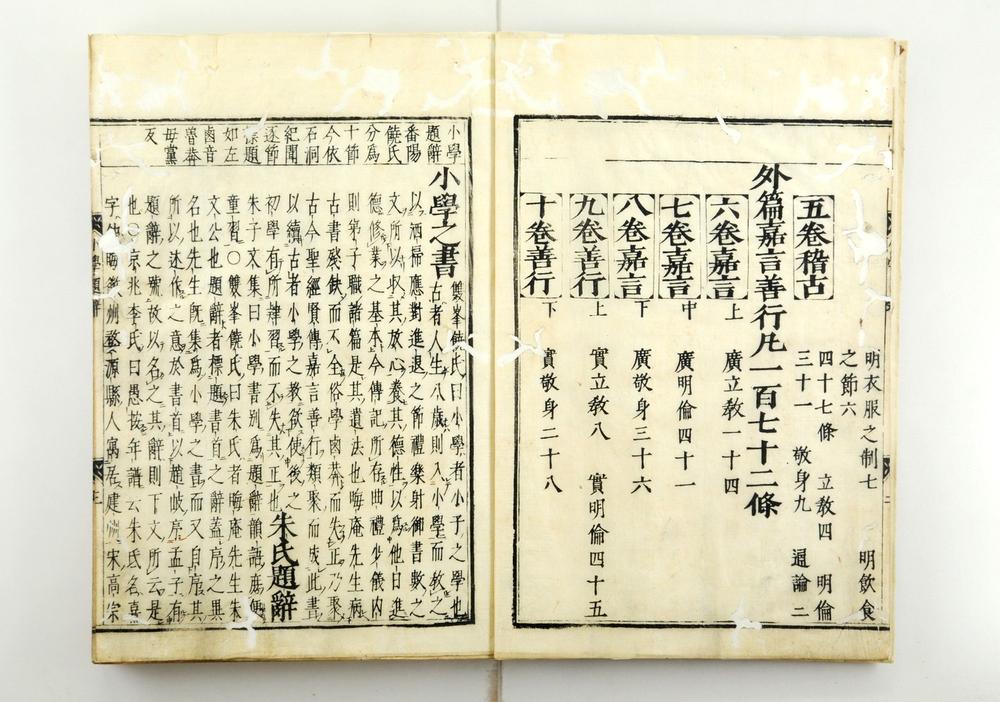 明衣服之制七　明飲食
之節六
五卷稽古　四十七條　立敎四　明倫
三十一　敬身九　通論二
外篇嘉言善行凡一百七十二條
六卷嘉言上　廣立敎一十四
七卷嘉言中　廣明倫四十一
八卷嘉言下　廣敬身三十六
九卷善行上　實立敎八　實明倫四十五
十卷善行下　實敬身二十八
小學
題辭
番陽
饒氏
分爲
十節
今依
石洞
紀聞
逐節
標題
如左
鹵音
魯莽
毋黨
反
小學之書　雙峯饒氏曰小學者小子之學也
古者人生八歲則入小學而敎之
以洒掃應對進退之節禮樂射御書數之
文所以收其放心養其德性以爲他日進
德修業之基本今傳記所存曲禮少儀內
則弟子職諸篇是其遺法也晦庵先生病
古書殘缺而不全俗學鹵莽而失正乃聚
古今聖經賢傳嘉言善行類聚而成此書
以續古者小學之敎欲使後之
初學有所肄習而不失其正也　朱氏題辭
朱子文集曰小學書別爲題辭韻語庶便
童習〇雙峯饒氏曰朱氏者晦庵先生朱
文公也題辭者標題書首之辭蓋序之異
名也先生旣集爲小學之書而又自序其
所以述作之意於書首以趙岐序孟子有
題辭之號故以名之其辭則下文所云是
也〇京兆李氏曰愚按年譜云朱氏名熹
字仲晦徽州婺源縣人寓居建州宋高宗
小學題辭